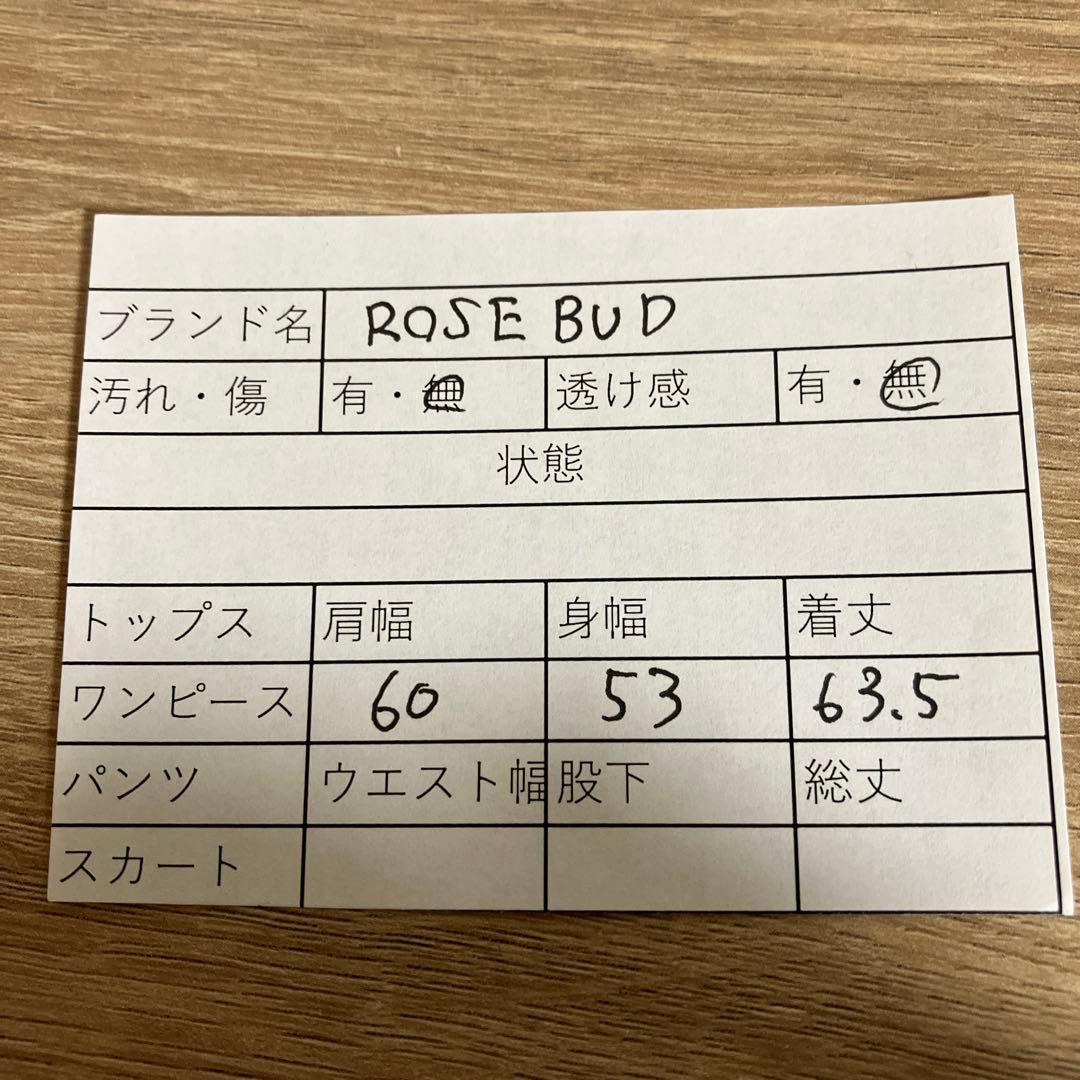 ブランド名 ROSE BUD
汚れ・傷 有・無 透け感 有・無
状態
トップス 肩幅 身幅 着丈
ワンピース 60 53 63.5
パンツ ウエスト幅 股下 総丈
スカート